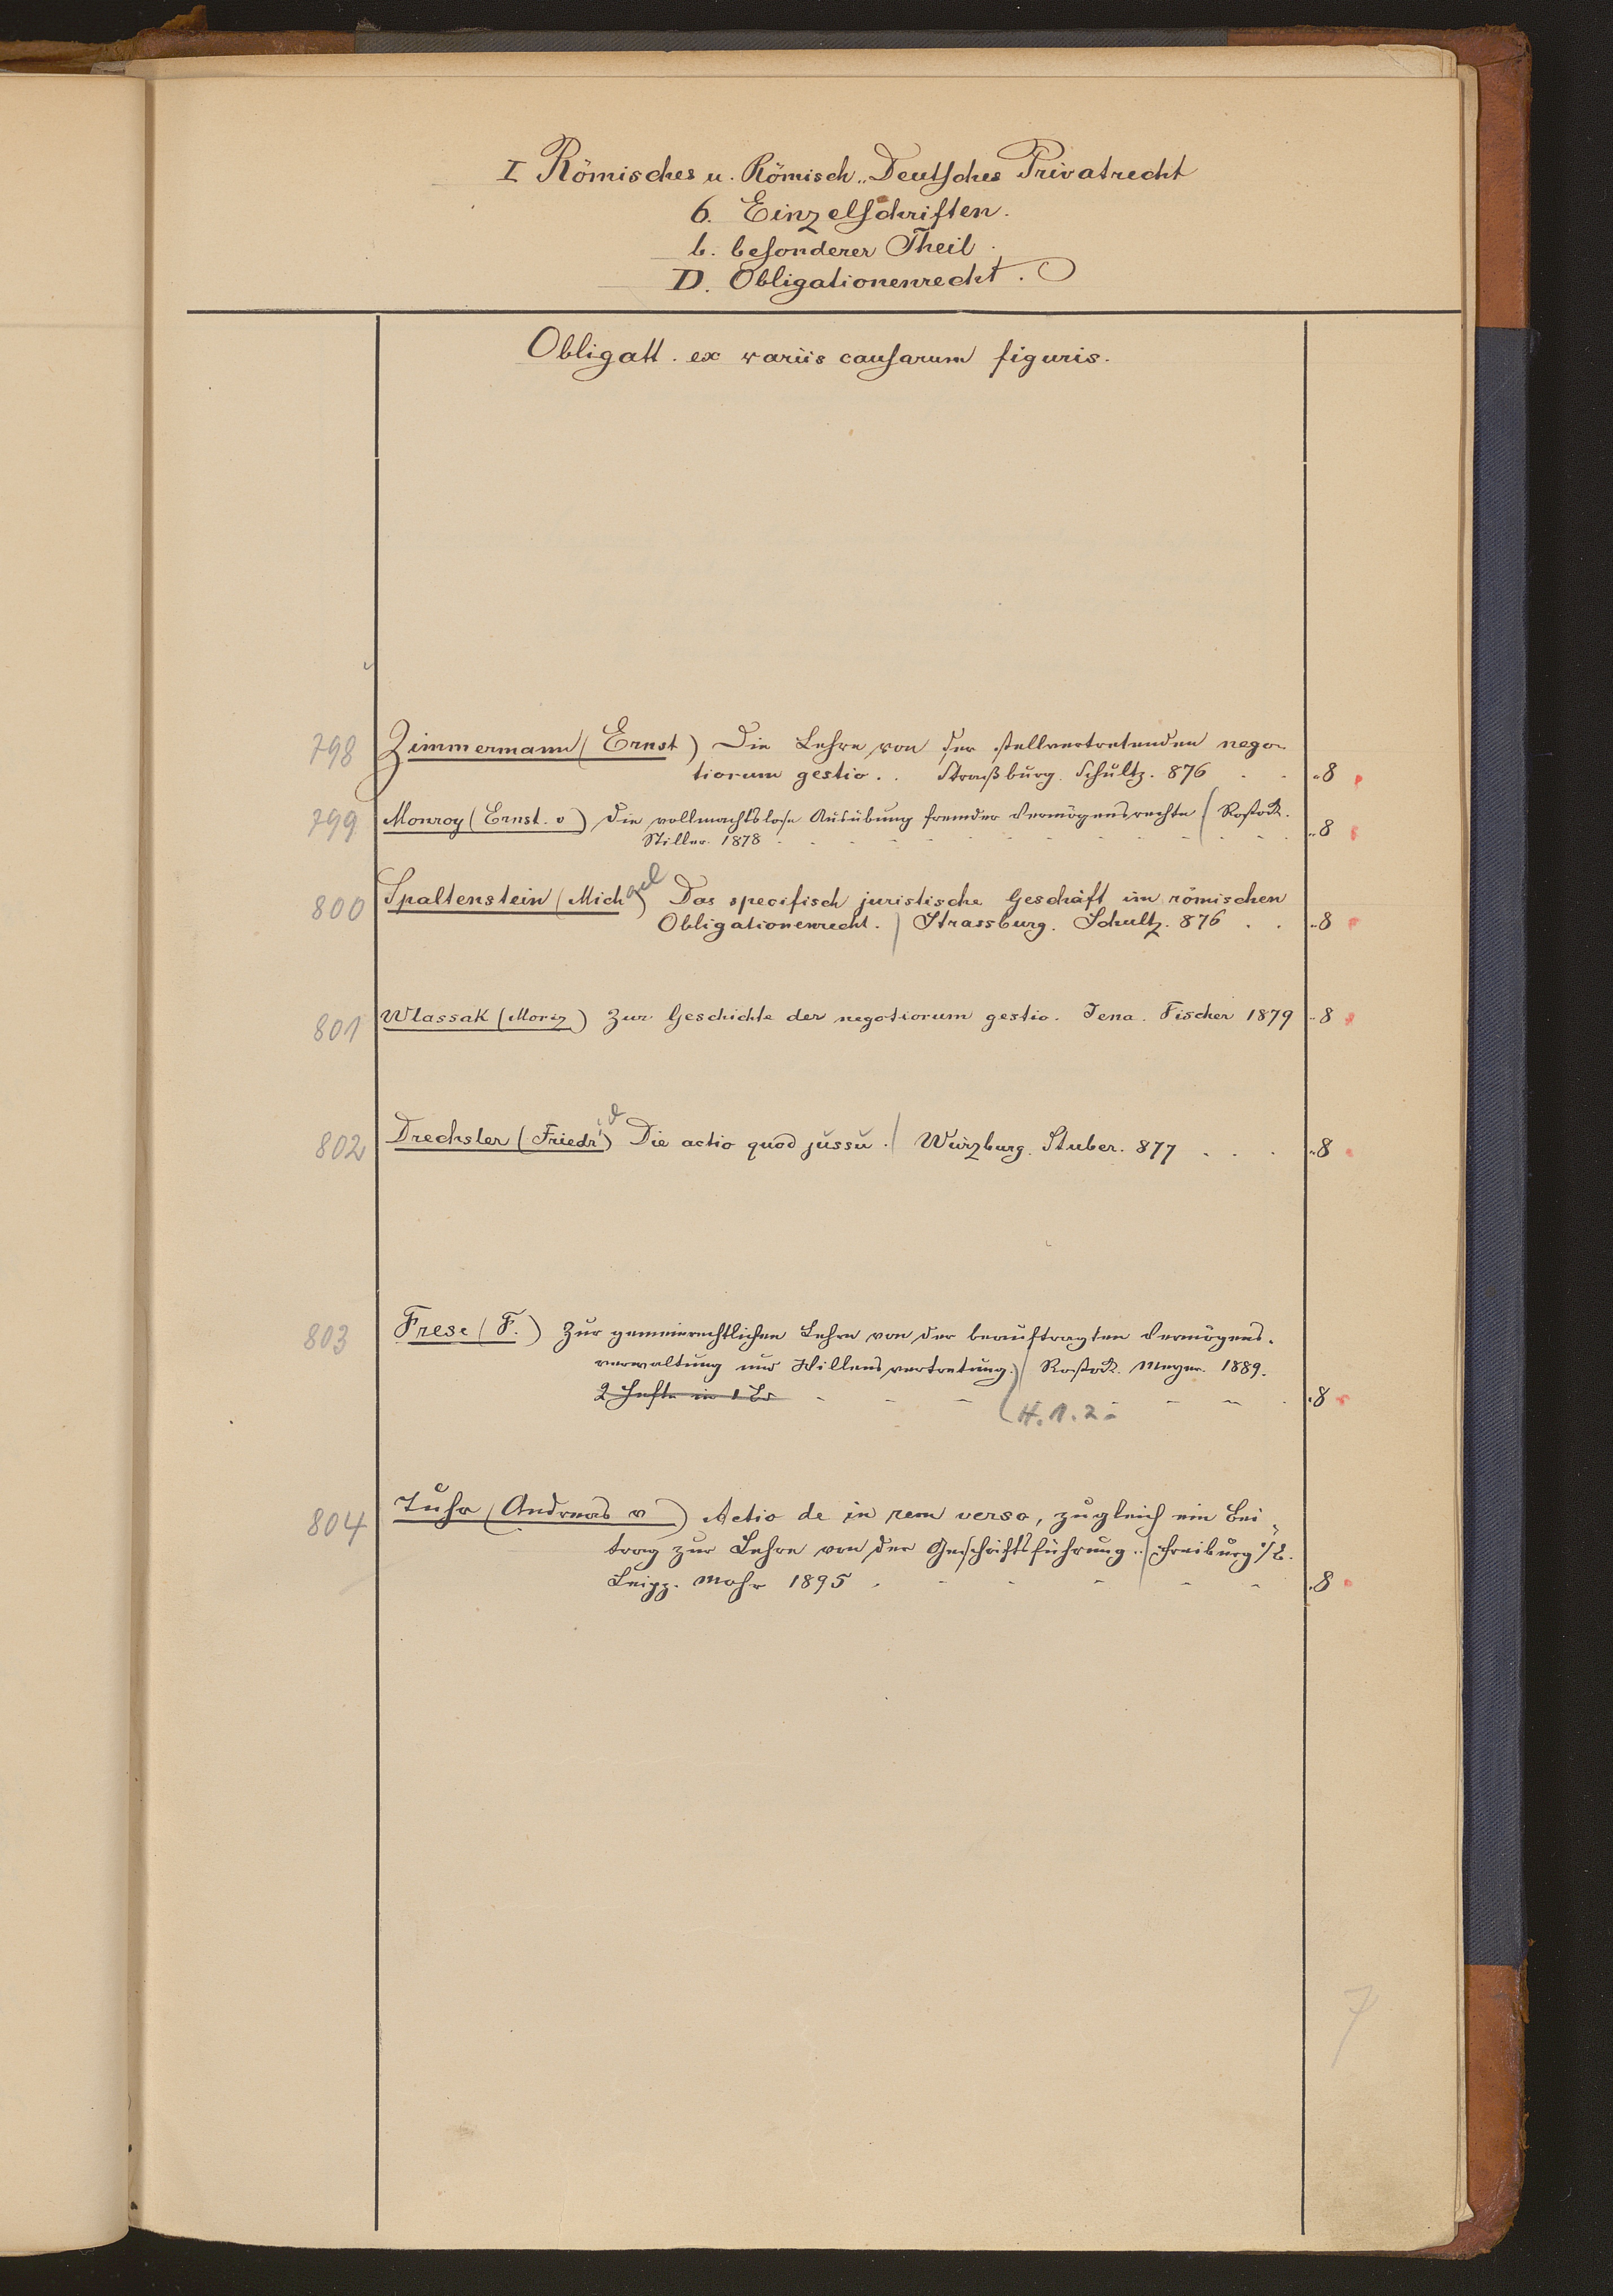 I Römisches u. Römisch-Deutsches Privatrecht
6. Einzelschriften.
b. besonderer Theil.
D. Obligationenrecht.
Obligatt. ex variis causarum figuris.
798 Zimmermann (Ernst) Die Lehre von der stellvertretenden nego-
tiorum gestio.. Straßburg. Schultz. 876 . . "8
799 Monroy (Ernst. v) Die vollmachtslose Ausübung fremder Vermögensrechte (Rostock.
Stiller. 1878 . - - - - - "8
800 Spaltenstein (Michael) Das specifisch juristische Geschäft im römischen
Obligationenrecht. / Strassburg. Schultz. 876 . . "8
801 Wlassak (Moriz) Zur Geschichte der negotiorum gestio. Jena. Fischer 1879 "8
802 Drechsler (Friedr.) Die actio quod jussu. / Würzburg. Stuber. 877 . . . "8
803 Frese (F.) Zur gemeinrechtlichen Lehre von der beauftragten Vermögens-
verwaltung und Willensvertretung.) / Rostock. Meyer. 1889.
2 Hefte in 1 Bd - - - (H. 1. 2 - - - - "8
804 Tuhr (Andreas v) Actio de in rem verso, zugleich ein Bei-
trag zur Lehre von der Geschäftsführung.. / Freiburg i/B.
Leipz. Mohr 1895 . - - - - - "8
7